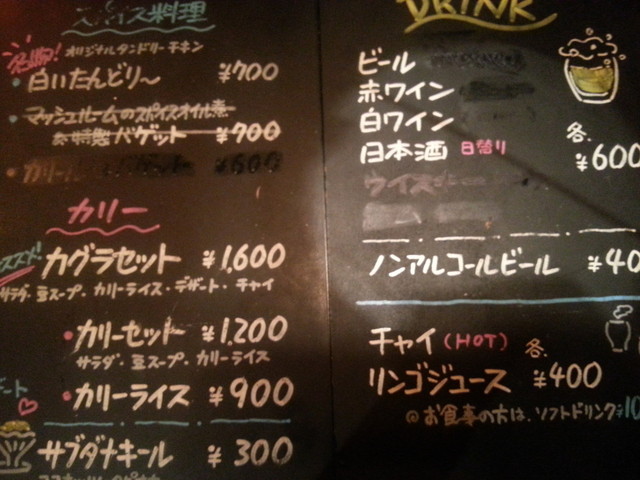 スパイス料理
名物! オリジナルタンドリーチキン
・白いたんどり〜 ¥700
・マッシュルームのスパイスオイル煮
お特製バゲット ¥700
・カリー バゲット ¥600
カリー
カグラセット ¥1,600
サラダ・豆スープ・カリーライス・デザート・チャイ
・カリーセット ¥1,200
サラダ・豆スープ・カリーライス
・カリーライス ¥900
サブダナキール ¥300
DRINK
ビール
赤ワイン
白ワイン 各.
日本酒 日替り ¥600
ウイス
ノンアルコールビール ¥40
チャイ(HOT) 各.
リンゴジュース ¥400
@お食事の方は、ソフトドリンク